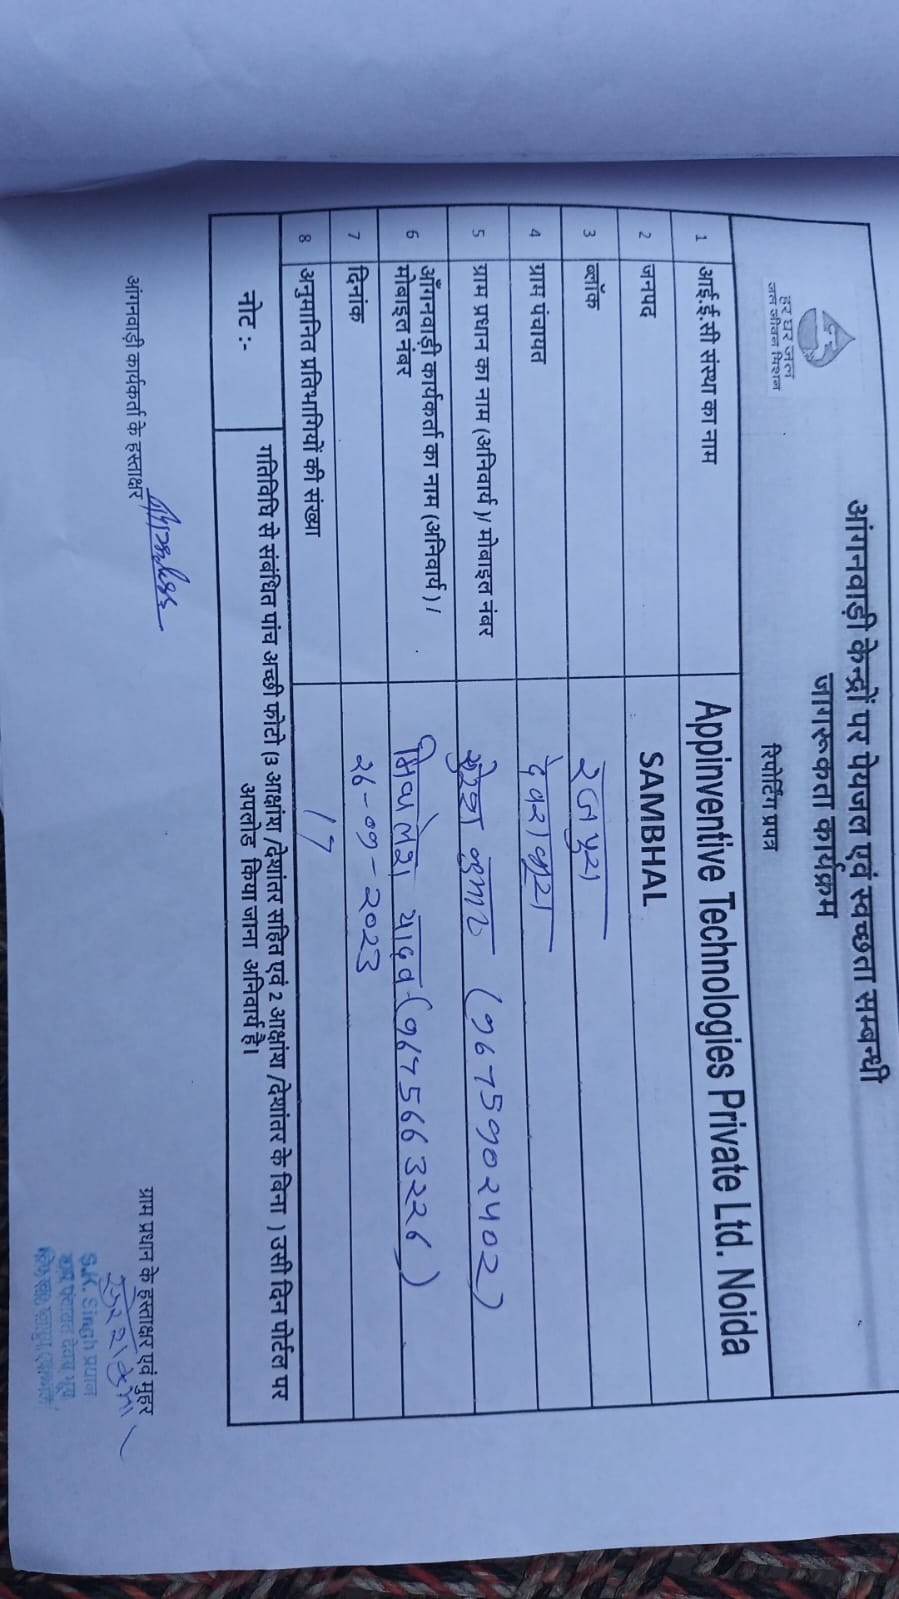 आंगनवाड़ी केन्द्रों पर पेयजल एवं स्वच्छता सम्बन्धी
जागरूकता कार्यक्रम
हर घर जल
जल जीवन मिशन
रिपोर्टिंग प्रपत्र
1 आई.ई.सी संस्था का नाम Appinventive Technologies Private Ltd. Noida
2 जनपद SAMBHAL
3 ब्लॉक रजपुरा
4 ग्राम पंचायत देवरा भूरा
5 ग्राम प्रधान का नाम (अनिवार्य )/ मोबाइल नंबर सुरेश कुमार (9675902402)
6 आँगनवाड़ी कार्यकर्ता का नाम (अनिवार्य ) /
मोबाइल नंबर मिथलेश यादव (9675663226)
7 दिनांक २6-07-2023
8 अनुमानित प्रतिभागियों की संख्या 17
नोट :- गतिविधि से संबंधित पांच अच्छी फोटो (3 आक्षांश /देशांतर सहित एवं 2 आक्षांश /देशांतर के बिना ) उसी दिन पोर्टल पर
अपलोड किया जाना अनिवार्य है।
आंगनवाड़ी कार्यकर्ता के हस्ताक्षर
ग्राम प्रधान के हस्ताक्षर एवं मुहर
S.K. Singh प्रधान